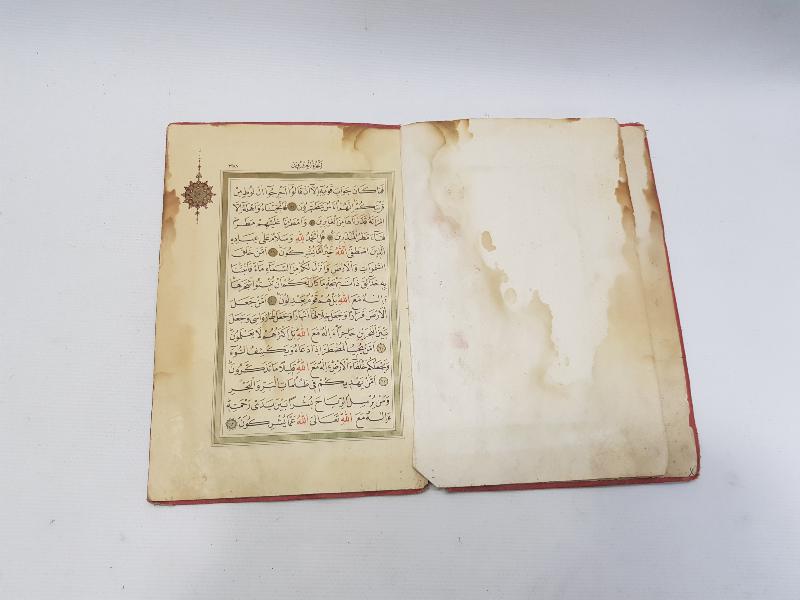 الجزء العشرون
فَمَا كَانَ جَوَابَ قَوْمِهِ إِلَّا أَنْ قَالُوا أَخْرِجُوا آلَ لُوطٍ مِنْ
قَرْيَتِكُمْ إِنَّهُمْ أُنَاسٌ يَتَطَهَّرُونَ فَأَنْجَيْنَاهُ وَأَهْلَهُ إِلَّا
امْرَأَتَهُ قَدَّرْنَاهَا مِنَ الْغَابِرِينَ وَأَمْطَرْنَا عَلَيْهِمْ مَطَرًا
فَسَاءَ مَطَرُ الْمُنْذَرِينَ قُلِ الْحَمْدُ لِلَّهِ وَسَلَامٌ عَلَى عِبَادِهِ
الَّذِينَ اصْطَفَى آللَّهُ خَيْرٌ أَمَّا يُشْرِكُونَ أَمَّنْ خَلَقَ
السَّمَوَاتِ وَالْأَرْضَ وَأَنْزَلَ لَكُمْ مِنَ السَّمَاءِ مَاءً فَأَنْبَتْنَا
بِهِ حَدَائِقَ ذَاتَ بَهْجَةٍ مَا كَانَ لَكُمْ أَنْ تُنْبِتُوا شَجَرَهَا
ءَإِلَهٌ مَعَ اللَّهِ بَلْ هُمْ قَوْمٌ يَعْدِلُونَ أَمَّنْ جَعَلَ
الْأَرْضَ قَرَارًا وَجَعَلَ خِلَالَهَا أَنْهَارًا وَجَعَلَ لَهَا رَوَاسِيَ وَجَعَلَ
بَيْنَ الْبَحْرَيْنِ حَاجِزًا ءَإِلَهٌ مَعَ اللَّهِ بَلْ أَكْثَرُهُمْ لَا يَعْلَمُونَ
أَمَّنْ يُجِيبُ الْمُضْطَرَّ إِذَا دَعَاهُ وَيَكْشِفُ السُّوءَ
وَيَجْعَلُكُمْ خُلَفَاءَ الْأَرْضِ ءَإِلَهٌ مَعَ اللَّهِ قَلِيلًا مَا تَذَكَّرُونَ
أَمَّنْ يَهْدِيكُمْ فِي ظُلُمَاتِ الْبَرِّ وَالْبَحْرِ
وَمَنْ يُرْسِلُ الرِّيَاحَ بُشْرًا بَيْنَ يَدَيْ رَحْمَتِهِ
ءَإِلَهٌ مَعَ اللَّهِ تَعَالَى اللَّهُ عَمَّا يُشْرِكُونَ